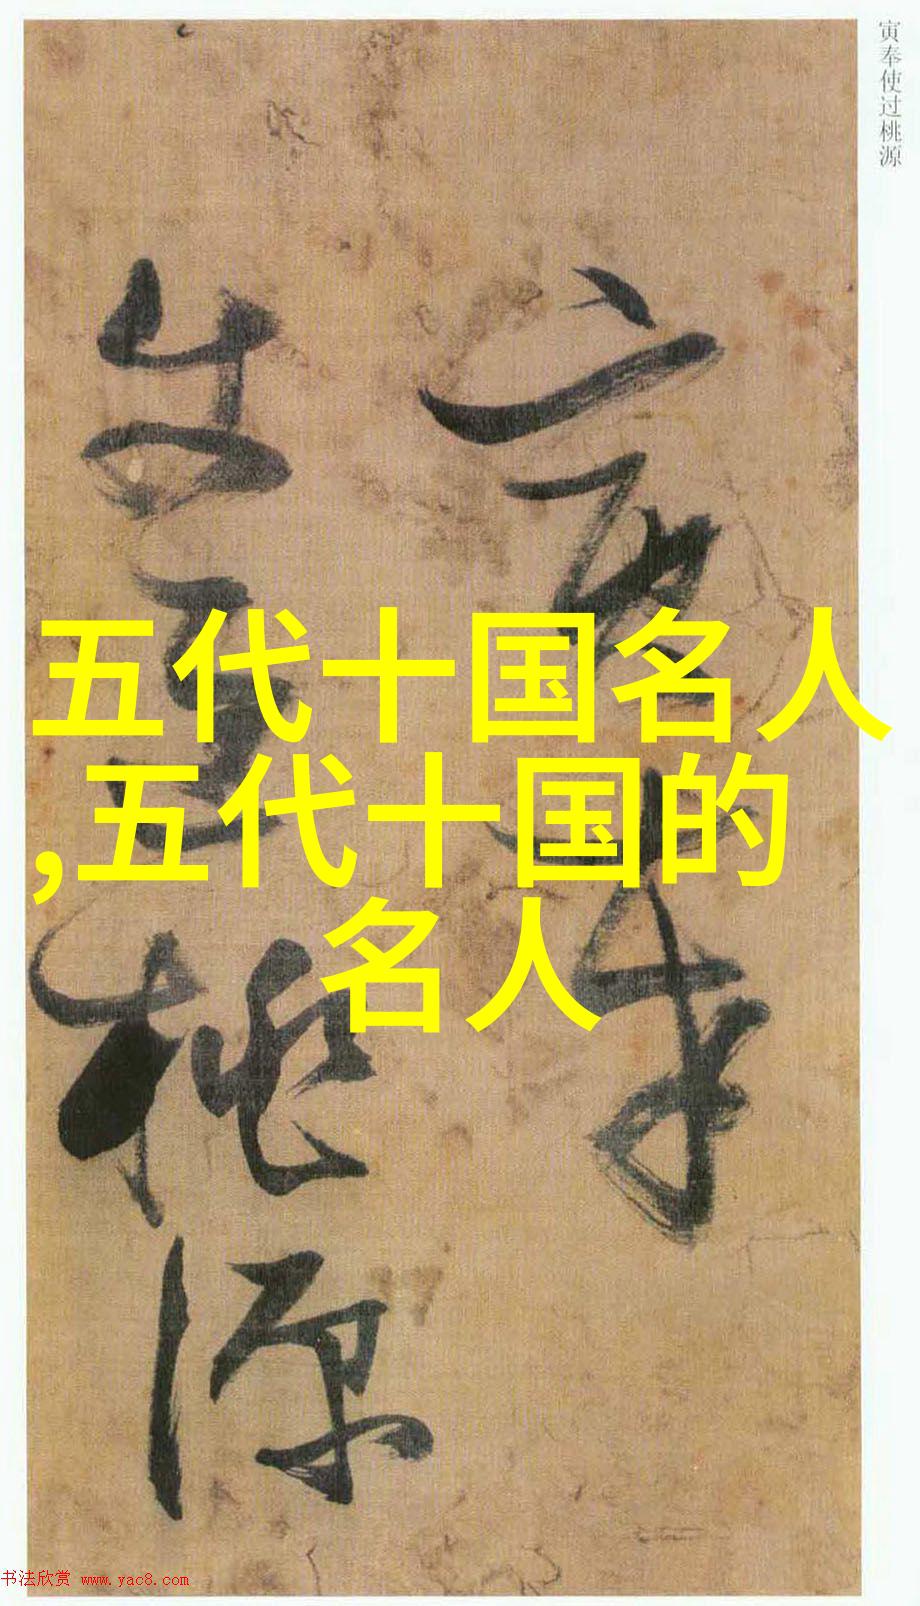 寅奉使过桃源
寅奉
使过桃源
五代十国名人
,五代十国的
名人
书法欣赏 www.yac8.com